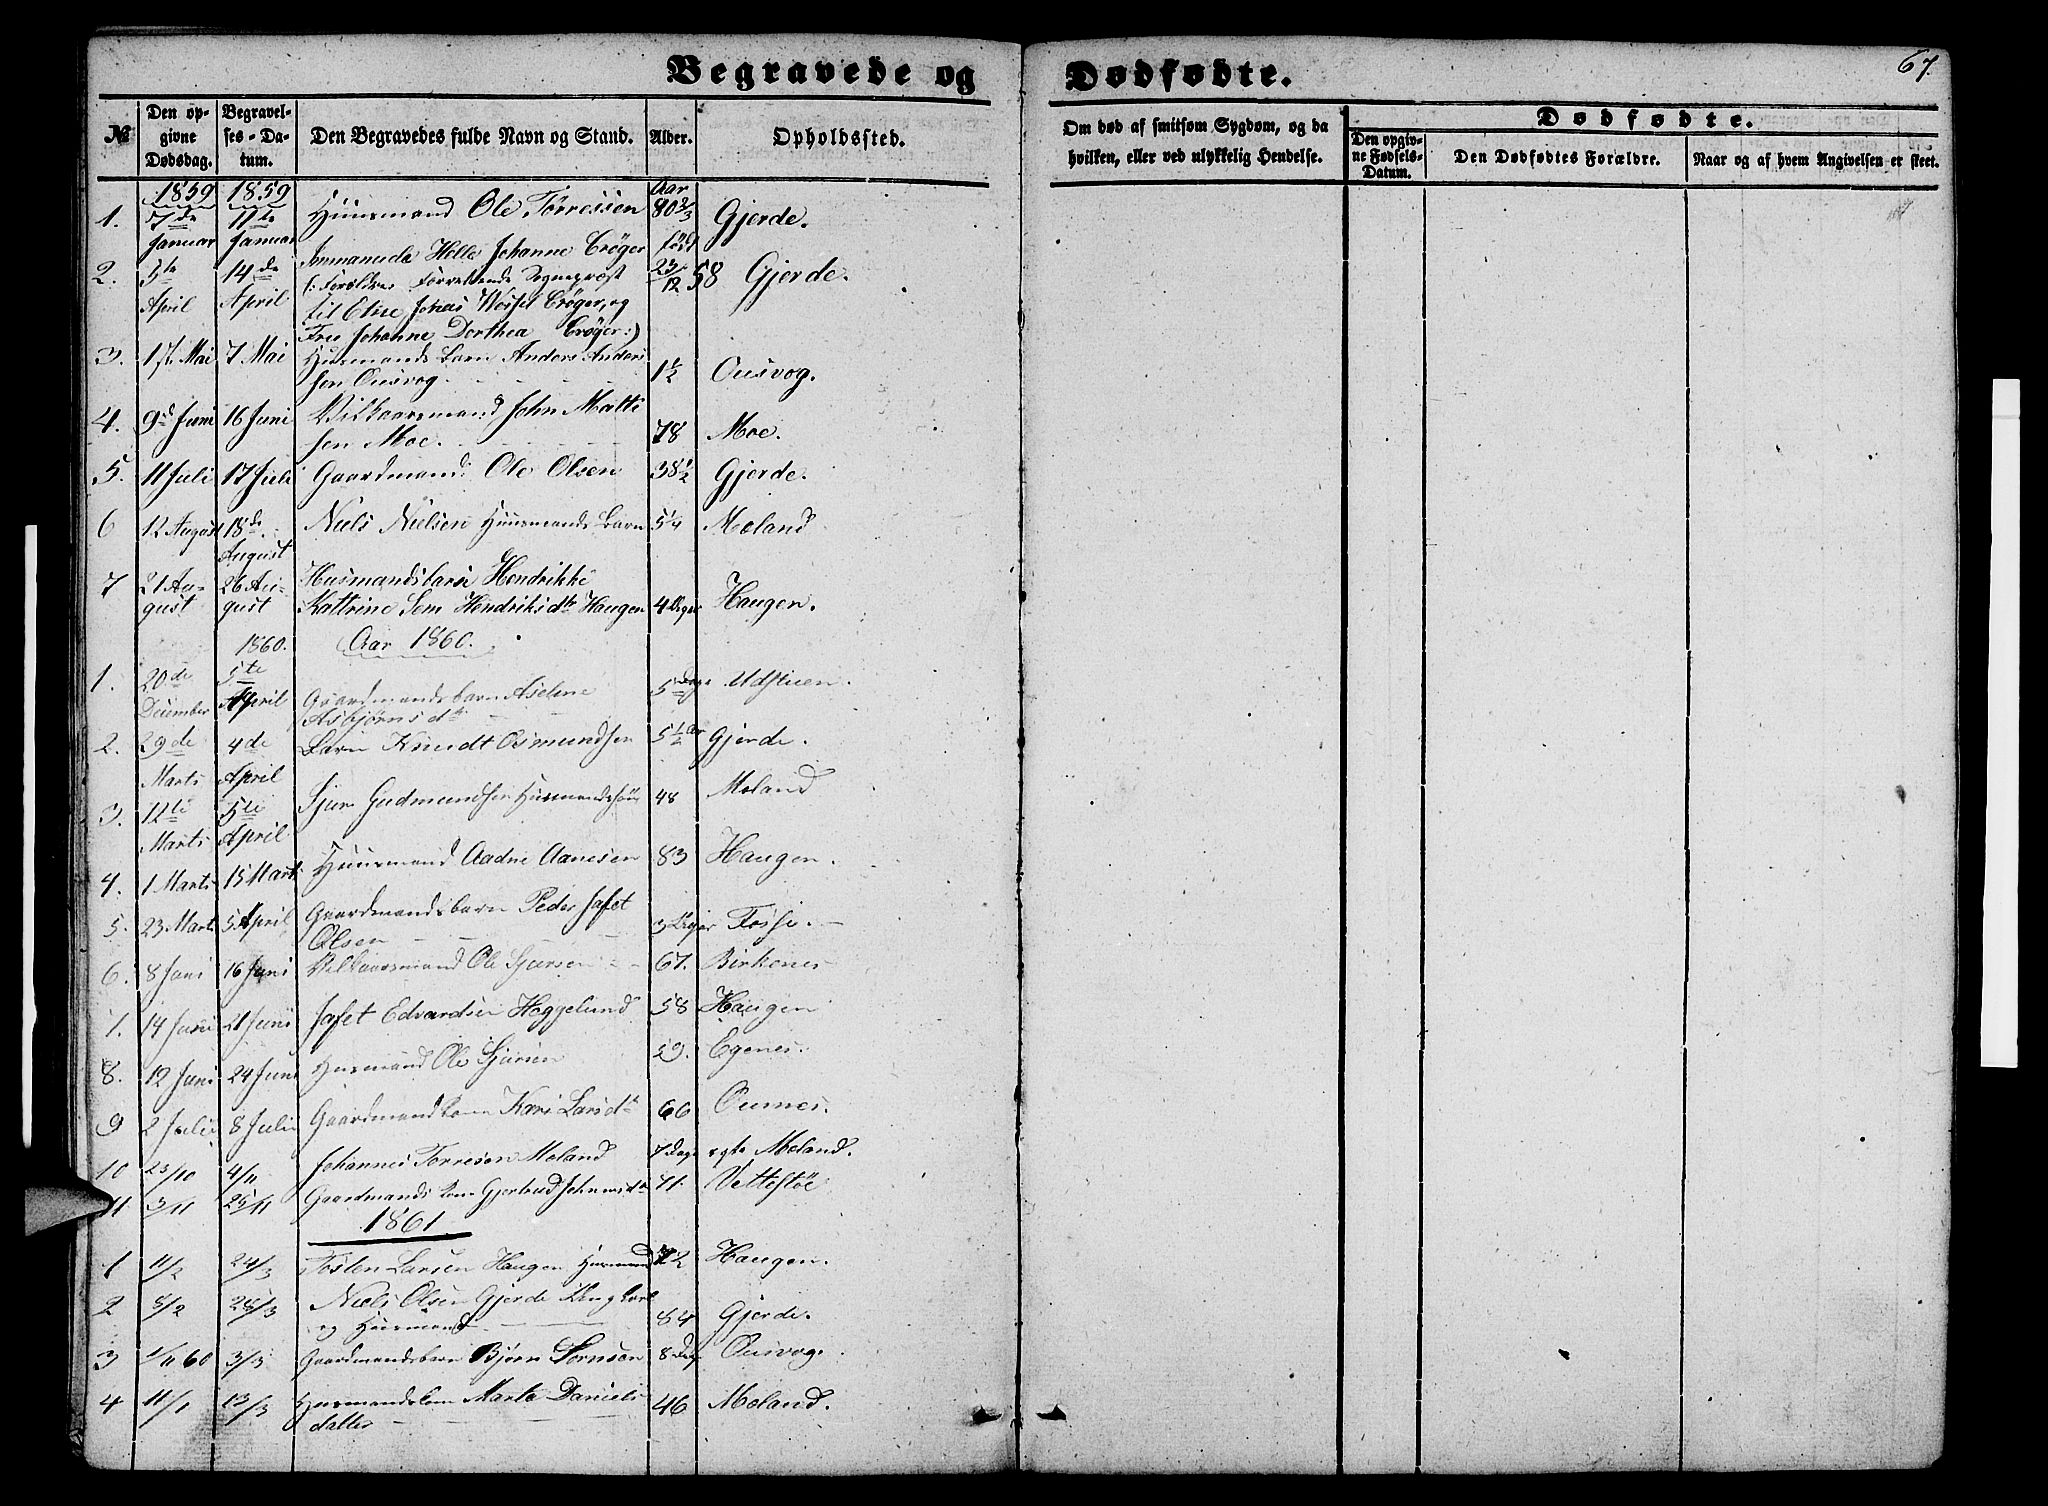 Begravede og Dødfødte.
67.
№ Den opgivne Dødsdag. Begravelses-Datum. Den Begravedes fulde Navn og Stand. Alder. Opholdssted. Om død af smitsom Sygdom, og da hvilken, eller ved ulykkelig Hendelse. Dødfødte.
Den opgivne Fødsels-Datum. Den Dødfødtes Forældre. Naar og af hvem Angivelsen er skeet.
1859 1859 Aar
1. 7de Januar 11te Januar Huusmand Ole Torressen 80 2/3 Gjerde.
2. 5te April 14de April Immanuela Helle Johanne Crøger født 23/12 58 Gjerde.
(: Forældre Sognepræst
til Etne Jonas Wessel Crøger, og
Fru Johanne Dorthea Crøger :)
3. 1st Mai 7 Mai Husmands Barn Anders Anders
sen Ousvog. 1 1/2 Ousvog.
4. 9d Juni 16 Juni Vilkaarsmand John Matti
sen Moe. 78 Moe.
5. 11 Juli 17 Juli Gaardmand Ole Olsen 38 1/2 Gjerde.
6 12 August 18de August Niels Nielsen Huusmands Barn 5/4 Moland
7 21 August 26 August Husmandsbarn Hendrikke
Kattrine Sem Hendriksdtr Haugen 4 Uger Haugen.
1860. Aar 1860.
1. 20de December 5te April Gaardmandsbarn Aselene
Asbjørnsdtr 5 Dage Udstuen.
2. 29de Marts 4de April Barn Knudt Osmundsen 5 1/2 Aar Gjerde.
3. 12te Marts 5te April Sjur Gudmundsen Husmandssøn 48 Moland
4. 1 Marts 15 Marts Huusmand Aadne Aanesen 83 Haugen.
5. 23 Marts 5 April Gaardmandsbarn Peder Jafet
Olsen 3 Uger Fosse.
6. 8 Juni 16 Juni Vilkaarsmand Ole Sjursen 67. Birkenes
7. 14 Juni 21 Juni Jafet Edvardsen Heggelund 58 Haugen
8. 12 Juni 24 Juni Husmand Ole Sjursen 59. Egenes.
9 2 Juli 8 Juli Gaardmandkone Kari Larsdtr 66 Ournes.
10 25/10 4/11 Johannes Torresen Moland 7 Dage ægte Moland.
11 3/11 25/11 Gaardmands Kone Gjertrud Johnnesdtr 71. Vettestøe
1861
1 11/2 24/3 Tosten Larsen Haugen Husmand 72 Haugen.
2 8/2 28/3 Niels Olsen Gjerde
og Huusmand 84 Gjerde.
3 1/11 60 3/3 Gaardmandsbarn Bjørn Sørnsen 8 Dage Ousvog.
4 11/1 13/3 Husmandskone Marta Daniels
datter 46 Moland.